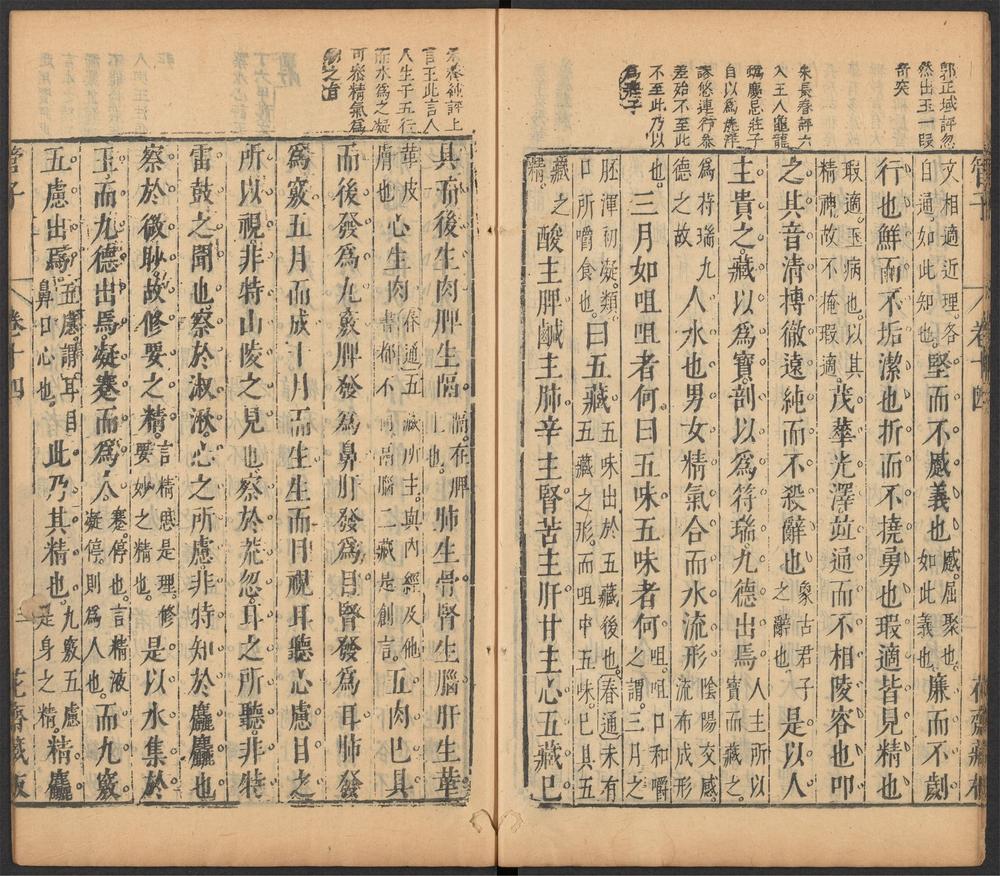 郭正域評忽
然出玉一段
奇突
朱長春評六
入王人龜龍
為慶忌莊子
自以為洸洋
謬悠連行黍
差始不至此
不至此乃以
為莊子
管子
卷十四
花齋藏板
文相適近理各
自通如此知也堅而不蹙義也蹙屈聚也
如此義也廉而不劌
行也鮮而不垢潔也折而不撓勇也瑕適皆見精也
瑕適玉病也以其
精神故不掩瑕適茂華光澤竝通而不相陵容也叩
之其音清搏徹遠純而不殺辭也象古君子
之辭也是以人
主貴之藏以為寶剖以為符瑞九德出焉人主所以
寶而藏之
為符瑞九
德之故人水也男女精氣合而水流形陰陽交感
流布成形
也三月如咀咀者何曰五味五味者何咀咀口和嚼
之謂三月之
胚渾初凝類
口所嚼食也曰五藏五味出於五藏後也春通未有
五藏之形而咀中五味已具五
藏之
精酸主脾鹹主肺辛主腎苦主肝甘主心五藏已
朱養純評上
言玉此言人
人生于五行
而水為之凝
可察精氣為
物之旨
具而後生肉脾生隔隔在脾
上也肺生骨腎生腦肝生革
革皮
膚也心生肉春通五藏所主與內經及他
書都不同胃腦二藏是創言五肉已具
而後發為九竅脾發為鼻肝發為目腎發為耳肺發
為竅五月而成十月而生生而目視耳聽心慮目之
所以視非特山陵之見也察於荒忽耳之所聽非特
雷鼓之聞也察於淑湫心之所慮非特知於麤麤也
察於微眇故修要之精言精感是理修
要妙之精也是以水集於
玉而九德出焉凝蹇而為人蹇停也言精液
凝停則為人也而九竅
五慮出焉五慮謂耳目
鼻口心也此乃其精也九竅五慮
是身之精精麤
管子
卷十四
花齋藏板